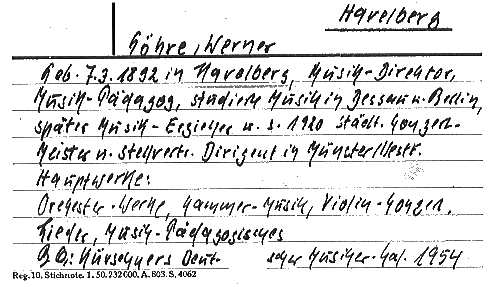 Havelberg
Göhre, Werner
Geb. 7.3.1892 in Havelberg, Musik-Direktor,
Musik-Pädagog, studierte Musik in Dessau u. Berlin,
später Musik-Erzieher u. s. 1920 Städt. Konzert-
Meister u. stellvertr. Dirigent in Münster/Westf.
Hauptwerke:
Orchester-Werke, Kammer-Musik, Violin-Konzert,
Lieder, Musik-Pädagogisches
Kürschners Deutscher Musiker-Kal. 1954
Reg. 10. Stichnote. 1. 50. 232000. A. 803. S. 4062